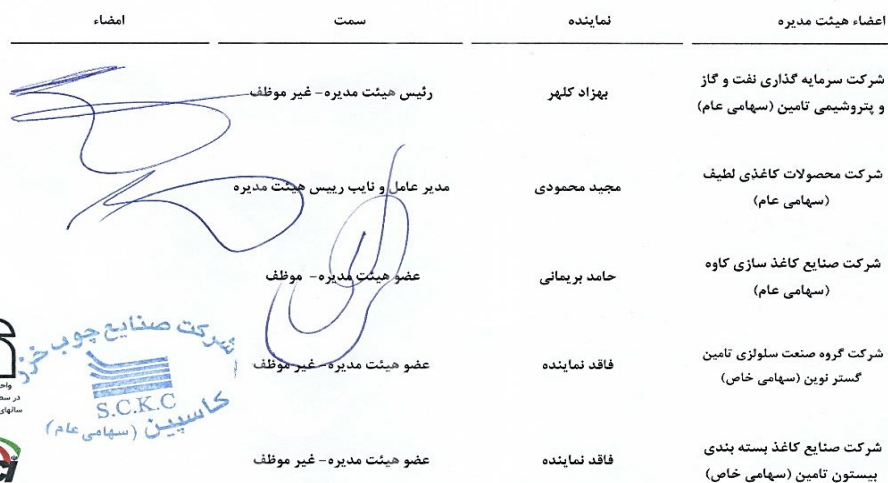 اعضاء هیئت مدیره نماینده سمت امضاء
شرکت سرمایه گذاری نفت و گاز
و پتروشیمی تامین (سهامی عام)
بهزاد کلهر
رئیس هیئت مدیره- غیر موظف
شرکت محصولات کاغذی لطیف
(سهامی عام)
مجید محمودی
مدیر عامل و نایب رییس هیئت مدیره
شرکت صنایع کاغذ سازی کاوه
(سهامی عام)
حامد بریمانی
عضو هیئت مدیره- موظف
شرکت گروه صنعت سلولزی تامین
گستر نوین (سهامی خاص)
فاقد نماینده
عضو هیئت مدیره- غیر موظف
شرکت صنایع کاغذ بسته بندی
بیستون تامین (سهامی خاص)
فاقد نماینده
عضو هیئت مدیره- غیر موظف
شرکت صنایع چوب خزر
S.C.K.C
کاسپین (سهامی عام)
در سط
سالهای